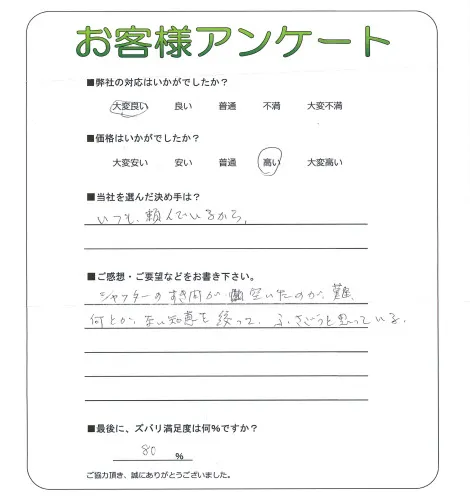 お客様アンケート
■弊社の対応はいかがでしたか？
大変良い 良い 普通 不満 大変不満
■価格はいかがでしたか？
大変安い 安い 普通 高い 大変高い
■当社を選んだ決め手は？
いつも、頼んでいるから、
■ご感想・ご要望などをお書き下さい。
シャッターのすき間が 空いたのが、難、
何とか、ない知恵を絞って、ふさごうと思っている。
■最後に、ズバリ満足度は何%ですか？
80 %
ご協力頂き、誠にありがとうございました。